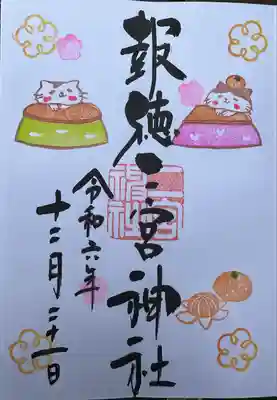 報徳二宮神社
二宮
神社
令和六年
十二月二十一日